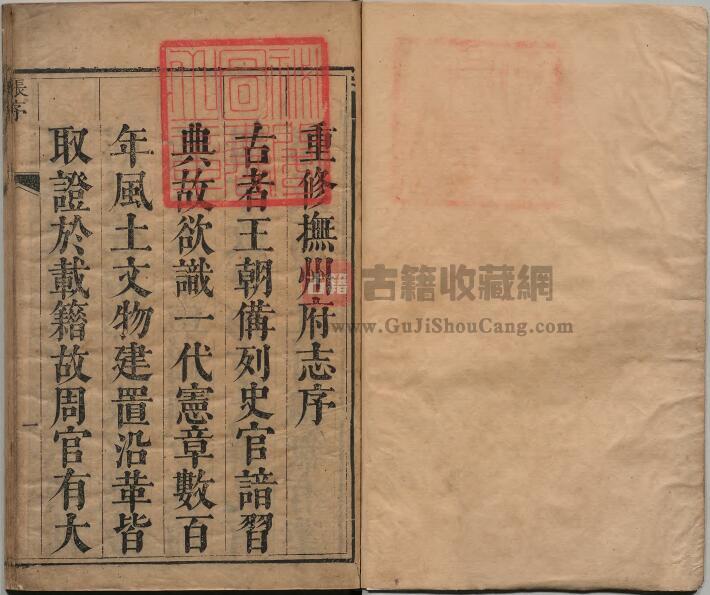 重修撫州府志序
古者王朝備列史官諳習
典故欲識一代憲章數百
年風土文物建置沿革皆
取證於載籍故周官有大
張序
一
古籍
古籍收藏網
www.GuJiShouCang.com